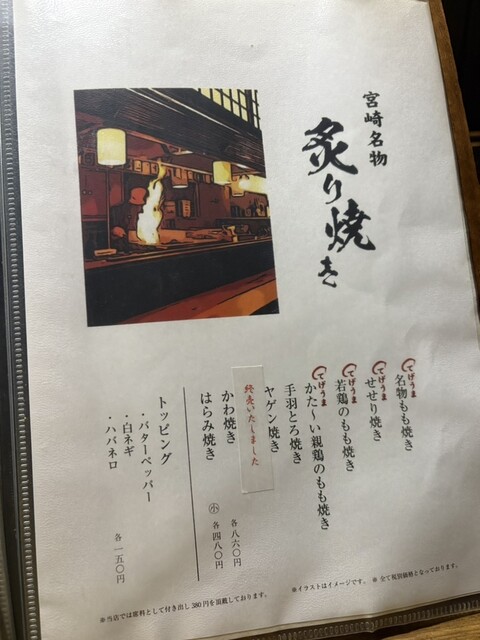 宮崎名物
炙り焼き
てげうま
名物もも焼き
てげうま
せせり焼き
てげうま
若鶏のもも焼き
てげうま
かた〜い親鶏のもも焼き
手羽とろ焼き
ヤゲン焼き
終売いたしました
かわ焼き
はらみ焼き
各八六〇円
小 各四八〇円
トッピング
・バターペッパー
・白ネギ
・ハバネロ
各一五〇円
※イラストはイメージです。 ※全て税別価格となっております。
※当店では席料として付き出し380円を頂戴しております。